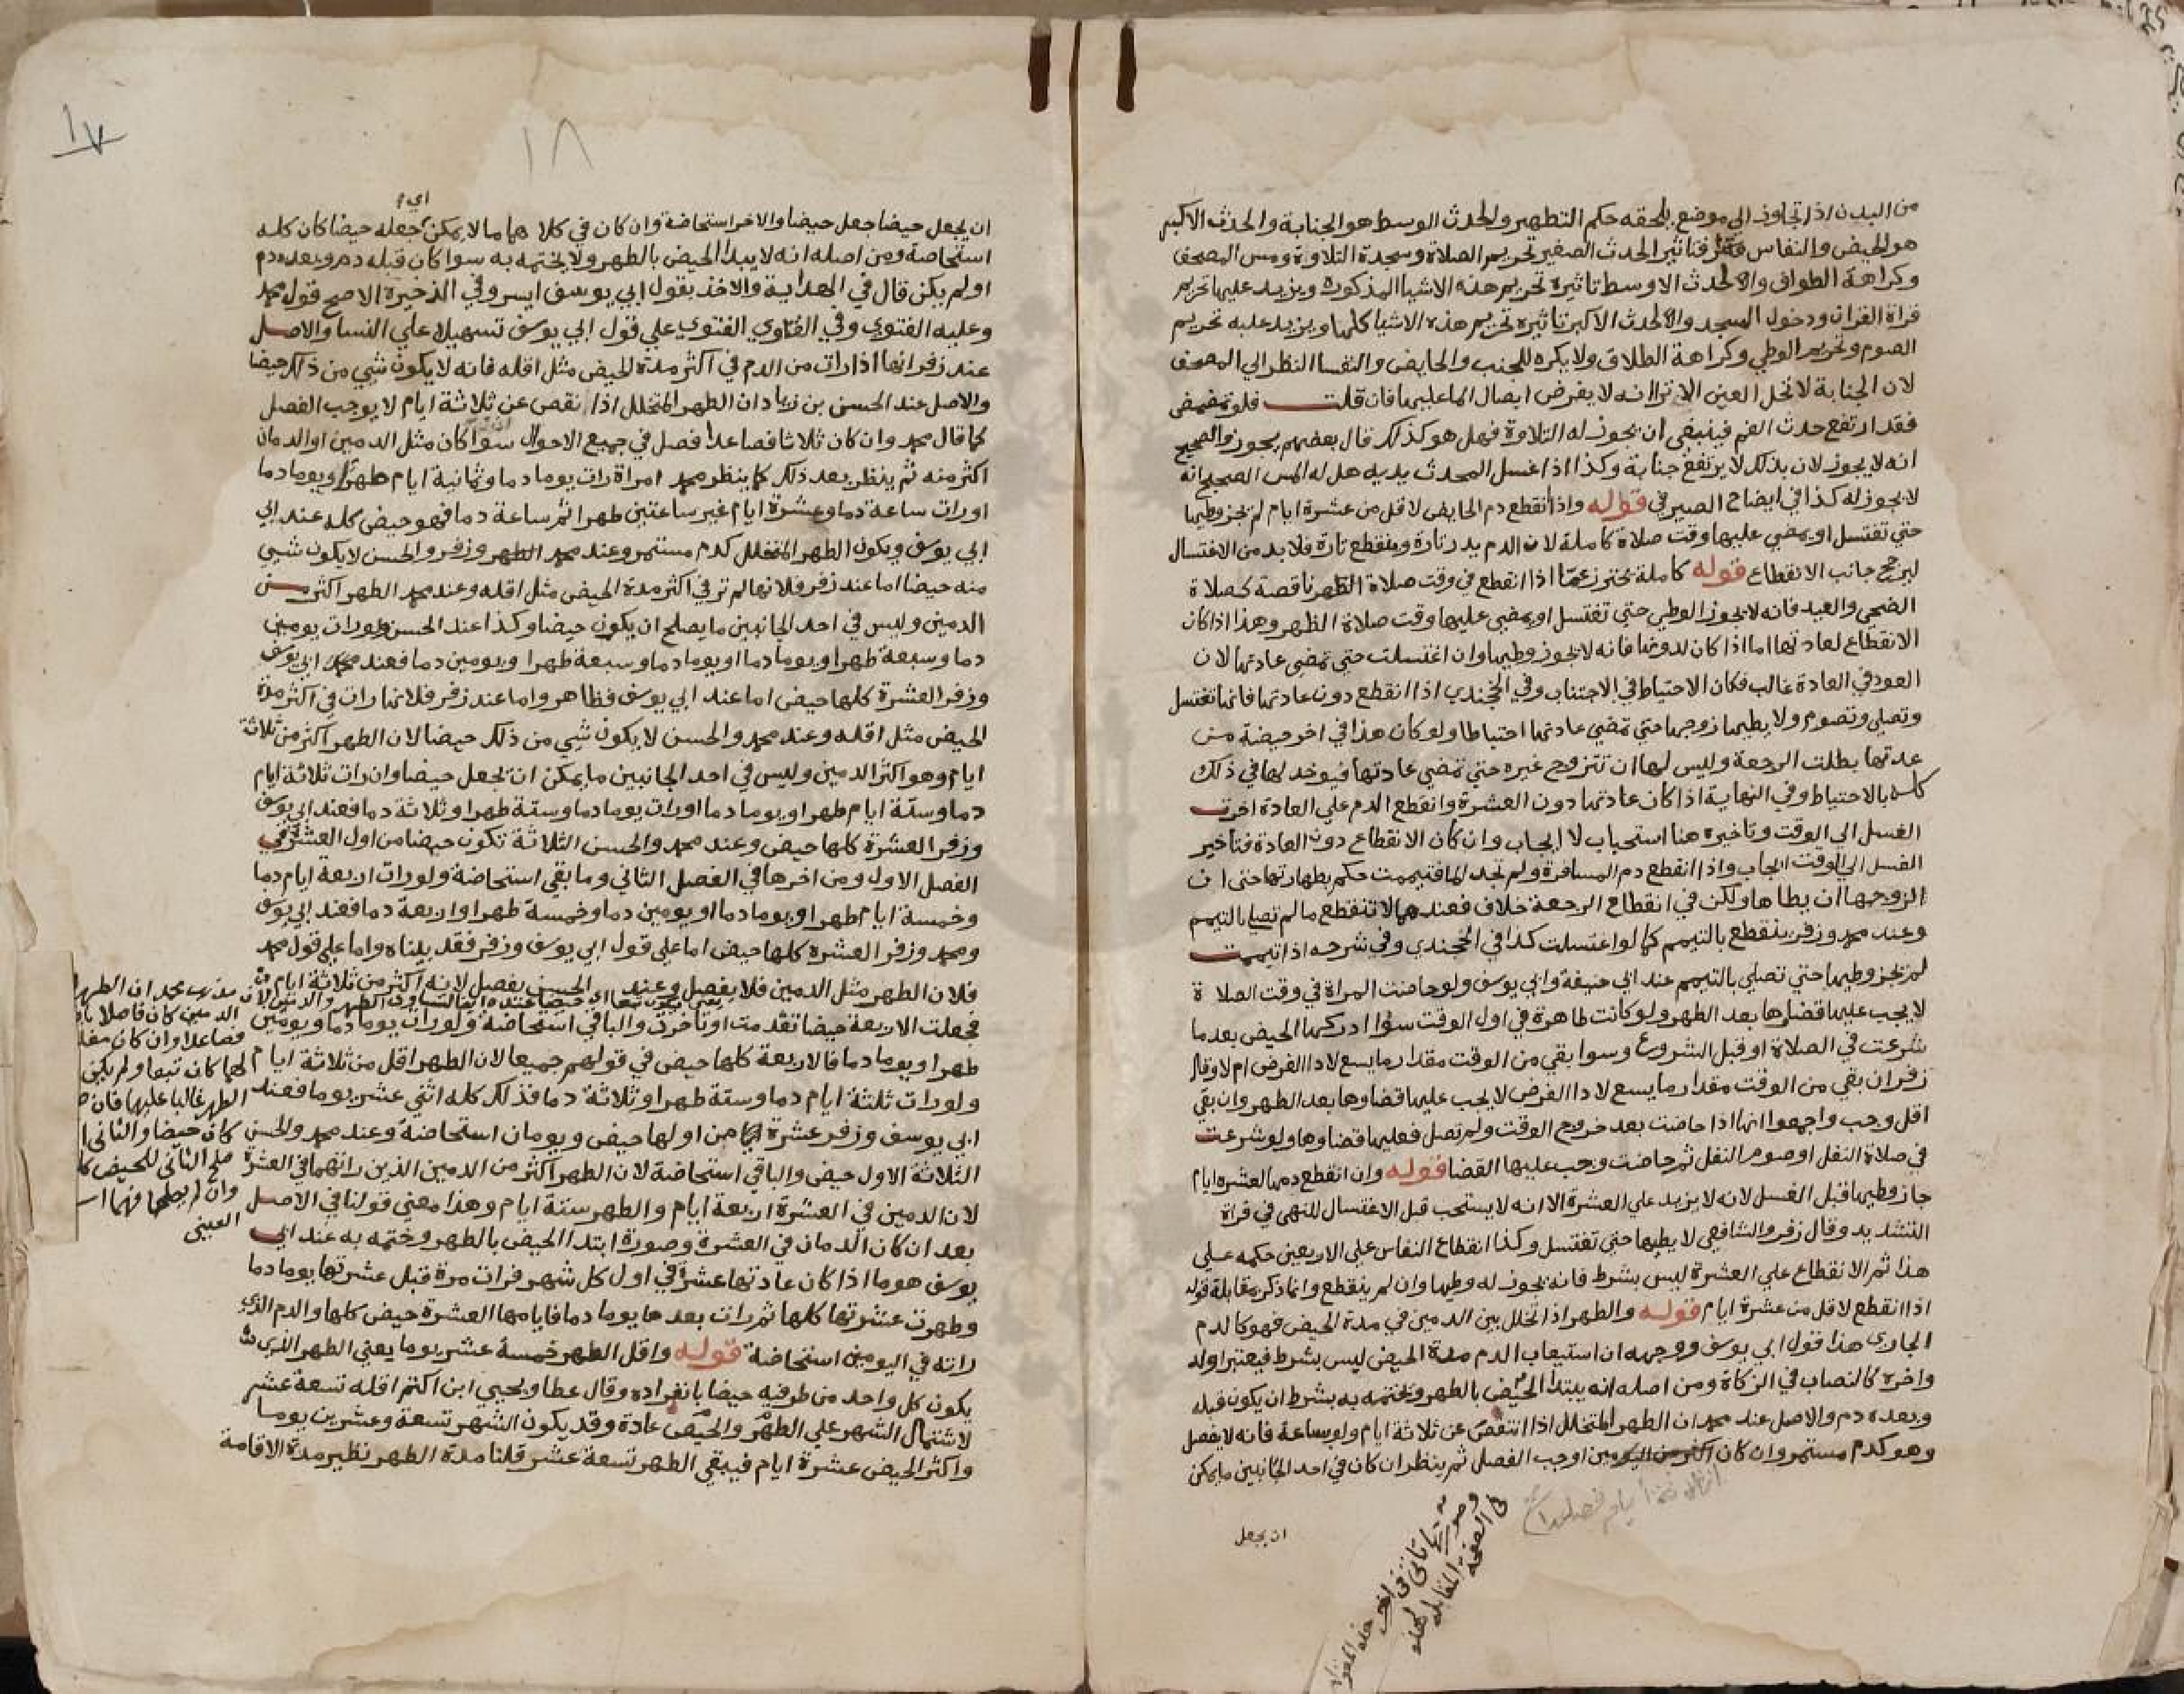 من البدن اذا تجاوز الي موضع يلحقه حكم التطهير والحدث الوسط هو الجنابة والحدث الاكبر
هو الحيض والنفاس فتاثير الحدث الصغير تحريم الصلاة وسجدة التلاوة ومس المصحف
وكراهة الطواف والحدث الاوسط تاثيره تحريم هذه الاشيا المذكورة ويزيد عليها تحريم
قراة القران ودخول المسجد والحدث الاكبر تاثيره تحريم هذه الاشيا كلها ويزيد عليه تحريم
الصوم وتحريم الوطي وكراهة الطلاق ولا يكره للجنب والحايض والنفسا النظر الي المصحف
لان الجنابة لا تحل العين الا ترا انه لا يفرض ايصال الما عليها فان قلت فلو تمضمض
فقد ارتفع حدث الفم فينبغي ان يجوز له التلاوة فهل هو كذلك قال بعضهم يجوز والصحيح
انه لا يجوز لان بذلك لا يرتفع جنابة وكذا اذا غسل المحدث يديه هل له المس الصحيح انه
لا يجوز له كذا في ايضاح الصيرفي قوله واذا انقطع دم الحايض لاقل من عشرة ايام لم يجز وطيها
حتي تغتسل او يمضي عليها وقت صلاة كاملة لان الدم يدر تارة وينقطع تارة فلا بد من الاغتسال
ليرجح جانب الانقطاع قوله كاملة تحترز عما اذا انقطع في وقت صلاة الظهر ناقصة كصلاة
الضحي والعيد فانه لا يجوز الوطي حتي تغتسل او يمضي عليها وقت صلاة الظهر وهذا اذا كان
الانقطاع لعادتها اما اذا كان لدونها فانه لا يجوز وطيها وان اغتسلت حتي تمضي عادتها لان
العود في العادة غالب فكان الاحتياط في الاجتناب وفي الخجندي اذا انقطع دون عادتها فانها تغتسل
وتصلي وتصوم ولا يطيها زوجها حتي تمضي عادتها احتياطا ولو كان هذا في اخر حيضة من
عدتها بطلت الرجعة وليس لها ان تتزوج غيره حتي تمضي عادتها فيوخذ لها في ذلك
كله بالاحتياط وفي النهاية اذا كان عادتها دون العشرة وانقطع الدم علي العادة اخرت
الغسل الي الوقت وتاخيره هنا استحباب لا ايجاب وان كان الانقطاع دون العادة فتاخير
الغسل الي الوقت ايجاب واذا انقطع دم المسافرة ولم تجد الما فتيممت حكم بطهارتها حتي ان
لزوجها ان يطاها ولكن في انقطاع الرجعة خلاف فعندهما لا تنقطع ما لم تصلي بالتيمم
وعند محمد وزفر ينقطع بالتيمم كما لو اغتسلت كذا في الخجندي وفي شرحه اذا تيممت
لم يجز وطيها حتي تصلي بالتيمم عند ابي حنيفة وابي يوسف ولو حاضت المراة في وقت الصلاة
لا يجب عليها قضاوها بعد الطهر ولو كانت طاهرة في اول الوقت سوا ادركها الحيض بعد ما
شرعت في الصلاة او قبل الشروع وسوا بقي من الوقت مقدار ما يسع لادا الفرض ام لا وقال
زفر ان بقي من الوقت مقدار ما يسع لادا الفرض لا يجب عليها قضاوها بعد الطهر وان بقي
اقل وجب واجمعوا انها اذا حاضت بعد خروج الوقت ولم تصل فعليها قضاوها ولو شرعت
في صلاة النفل او صوم النفل ثم حاضت وجب عليها القضا قوله وان انقطع دمها لعشرة ايام
جاز وطيها قبل الغسل لانه لا يزيد علي العشرة الا انه لا يستحب قبل الاغتسال للنهي في قراة
التشديد وقال زفر والشافعي لا يطيها حتي تغتسل وكذا انقطاع النفاس علي الاربعين حكمه علي
هذا ثم الانقطاع علي العشرة ليس بشرط فانه يجوز له وطيها وان لم ينقطع وانما ذكر مقابلة قوله
اذا انقطع لاقل من عشرة ايام قوله والطهر اذا تخلل بين الدمين في مدة الحيض فهو كالدم
الجاري هذا قول ابي يوسف ووجهه ان استيعاب الدم مدة الحيض ليس بشرط فيعتبر اوله
واخره كالنصاب في الزكاة ومن اصله انه يبتدا الحيض بالطهر ويختمه به بشرط ان يكون قبله
وبعده دم والاصل عند محمد ان الطهر المتخلل اذا انتقص عن ثلاثة ايام ولو بساعة فانه لا يفصل
وهو كدم مستمر وان كان اكثر من اليومين اوجب الفصل ثم ينظر ان كان في احد الجانبين ما يمكن
ان يجعل
في الصفحة المقابلة لهذه
١٨
١٧
اي
ان يجعل حيضا جعل حيضا والاخر استحاضة وان كان في كلاهما ما لا يمكن جعله حيضا كان كله
استحاضة ومن اصله انه لا يبدا الحيض بالطهر ولا يختمه به سوا كان قبله دم وبعده دم
او لم يكن قال في الهداية والاخذ بقول ابي يوسف ايسر وفي الذخيرة الاصح قول محمد
وعليه الفتوي وفي الفتاوي الفتوي علي قول ابي يوسف تسهيلا علي النسا والاصل
عند زفر انها اذا رات من الدم في اكثر مدة الحيض مثل اقله فانه لا يكون شي من ذلك حيضا
والاصل عند الحسن بن زياد ان الطهر المتخلل اذا نقص عن ثلاثة ايام لا يوجب الفصل
كما قال محمد وان كان ثلاثا فصاعدا فصل في جميع الاحوال سوا كان مثل الدمين او الدمان
اكثر منه ثم ينظر بعد ذلك كما ينظر محمد امراة رات يوما دما وثمانية ايام طهرا ويوما دما
او رات ساعة دما وعشرة ايام غير ساعتين طهرا ثم ساعة دما فهو حيض كله عند ابي
ابي يوسف ويكون الطهر المتخلل كدم مستمر وعند محمد الطهر وزفر والحسن لا يكون شي
منه حيضا اما عند زفر فلانها لم تر في اكثر مدة الحيض مثل اقله وعند محمد الطهر اكثر من
الدمين وليس في احد الجانبين ما يصلح ان يكون حيضا وكذا عند الحسن ولو رات يومين
دما وسبعة طهرا ويوما دما او يوما دما وسبعة طهرا ويومين دما فعند محمد ابي يوسف
وزفر العشرة كلها حيض اما عند ابي يوسف فظاهر واما عند زفر فلانها رات في اكثر مدة
الحيض مثل اقله وعند محمد والحسن لا يكون شي من ذلك حيضا لان الطهر اكثر من ثلاثة
ايام وهو اكثر الدمين وليس في احد الجانبين ما يمكن ان يجعل حيضا وان رات ثلاثة ايام
دما وستة ايام طهرا ويوما دما او رات يوما دما وستة طهرا وثلاثة دما فعند ابي يوسف
وزفر العشرة كلها حيض وعند محمد والحسن الثلاثة تكون حيضا من اول العشرة في
الفصل الاول ومن اخرها في الفصل الثاني وما بقي استحاضة ولو رات اربعة ايام دما
وخمسة ايام طهرا ويوما دما او يومين دما وخمسة طهرا واربعة دما فعند ابي يوسف
ومحمد وزفر العشرة كلها حيض اما علي قول ابي يوسف وزفر فقد بيناه واما علي قول محمد
فلان الطهر مثل الدمين فلا يفصل وعند الحسن يفصل لانه اكثر من ثلاثة ايام
فجعلت الاربعة حيضا تقدمت او تاخرت والباقي استحاضة ولو رات يوما دما ويومين
طهرا ويوما دما فالاربعة كلها حيض في قولهم جميعا لان الطهر اقل من ثلاثة ايام
ولو رات ثلثة ايام دما وستة طهرا وثلاثة دما فذلك كله اثني عشر يوما فعند
ابي يوسف وزفر عشرة ايام من اولها حيض ويومان استحاضة وعند محمد والحسن
الثلاثة الاول حيض والباقي استحاضة لان الطهر اكثر من الدمين الذين راتهما في العشرة
لان الدمين في العشرة اربعة ايام والطهر ستة ايام وهذا معني قولنا في الاصل
بعد ان كان الدمان في العشرة وصورة ابتدا الحيض بالطهر وختمه به عند ابي
يوسف هو ما اذا كان عادتها عشرة في اول كل شهر فرات مرة قبل عشرتها يوما دما
وطهرت عشرتها كلها ثم رات بعدها يوما دما فايامها العشرة حيض كلها والدم الذي
راته في اليومين استحاضة قوله واقل الطهر خمسة عشر يوما يعني الطهر الذي
يكون كل واحد من طرفيه حيضا بانفراده وقال عطا ويحيي ابن اكثم اقله تسعة عشر
لاشتمال الشهر علي الطهر والحيض عادة وقد يكون الشهر تسعة وعشرين يوما
واكثر الحيض عشرة ايام فيبقي الطهر تسعة عشر قلنا مدة الطهر نظير مدة الاقامة
مذهب محمد ان الطهر
الدمين كان فاصلا
فصاعدا وان كان
لهما كان تبعا ولم يكن
الطهر غالبا عليها فان
كان حيضا والثاني
صلح الثاني للحيض
وان لم يصلحا فهما
العيني